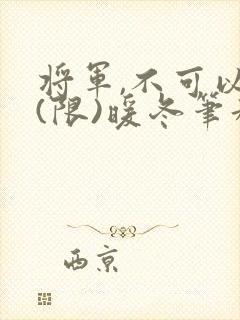 将軍,不可以
(限)暖冬筆
西京